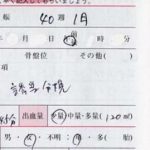 娠 40週 1日
前後 時 分
骨盤位 その他(
誘発分娩
分 出血量 少量・中量・多量( 120ml)
男・女・不明 単・多( 胎)